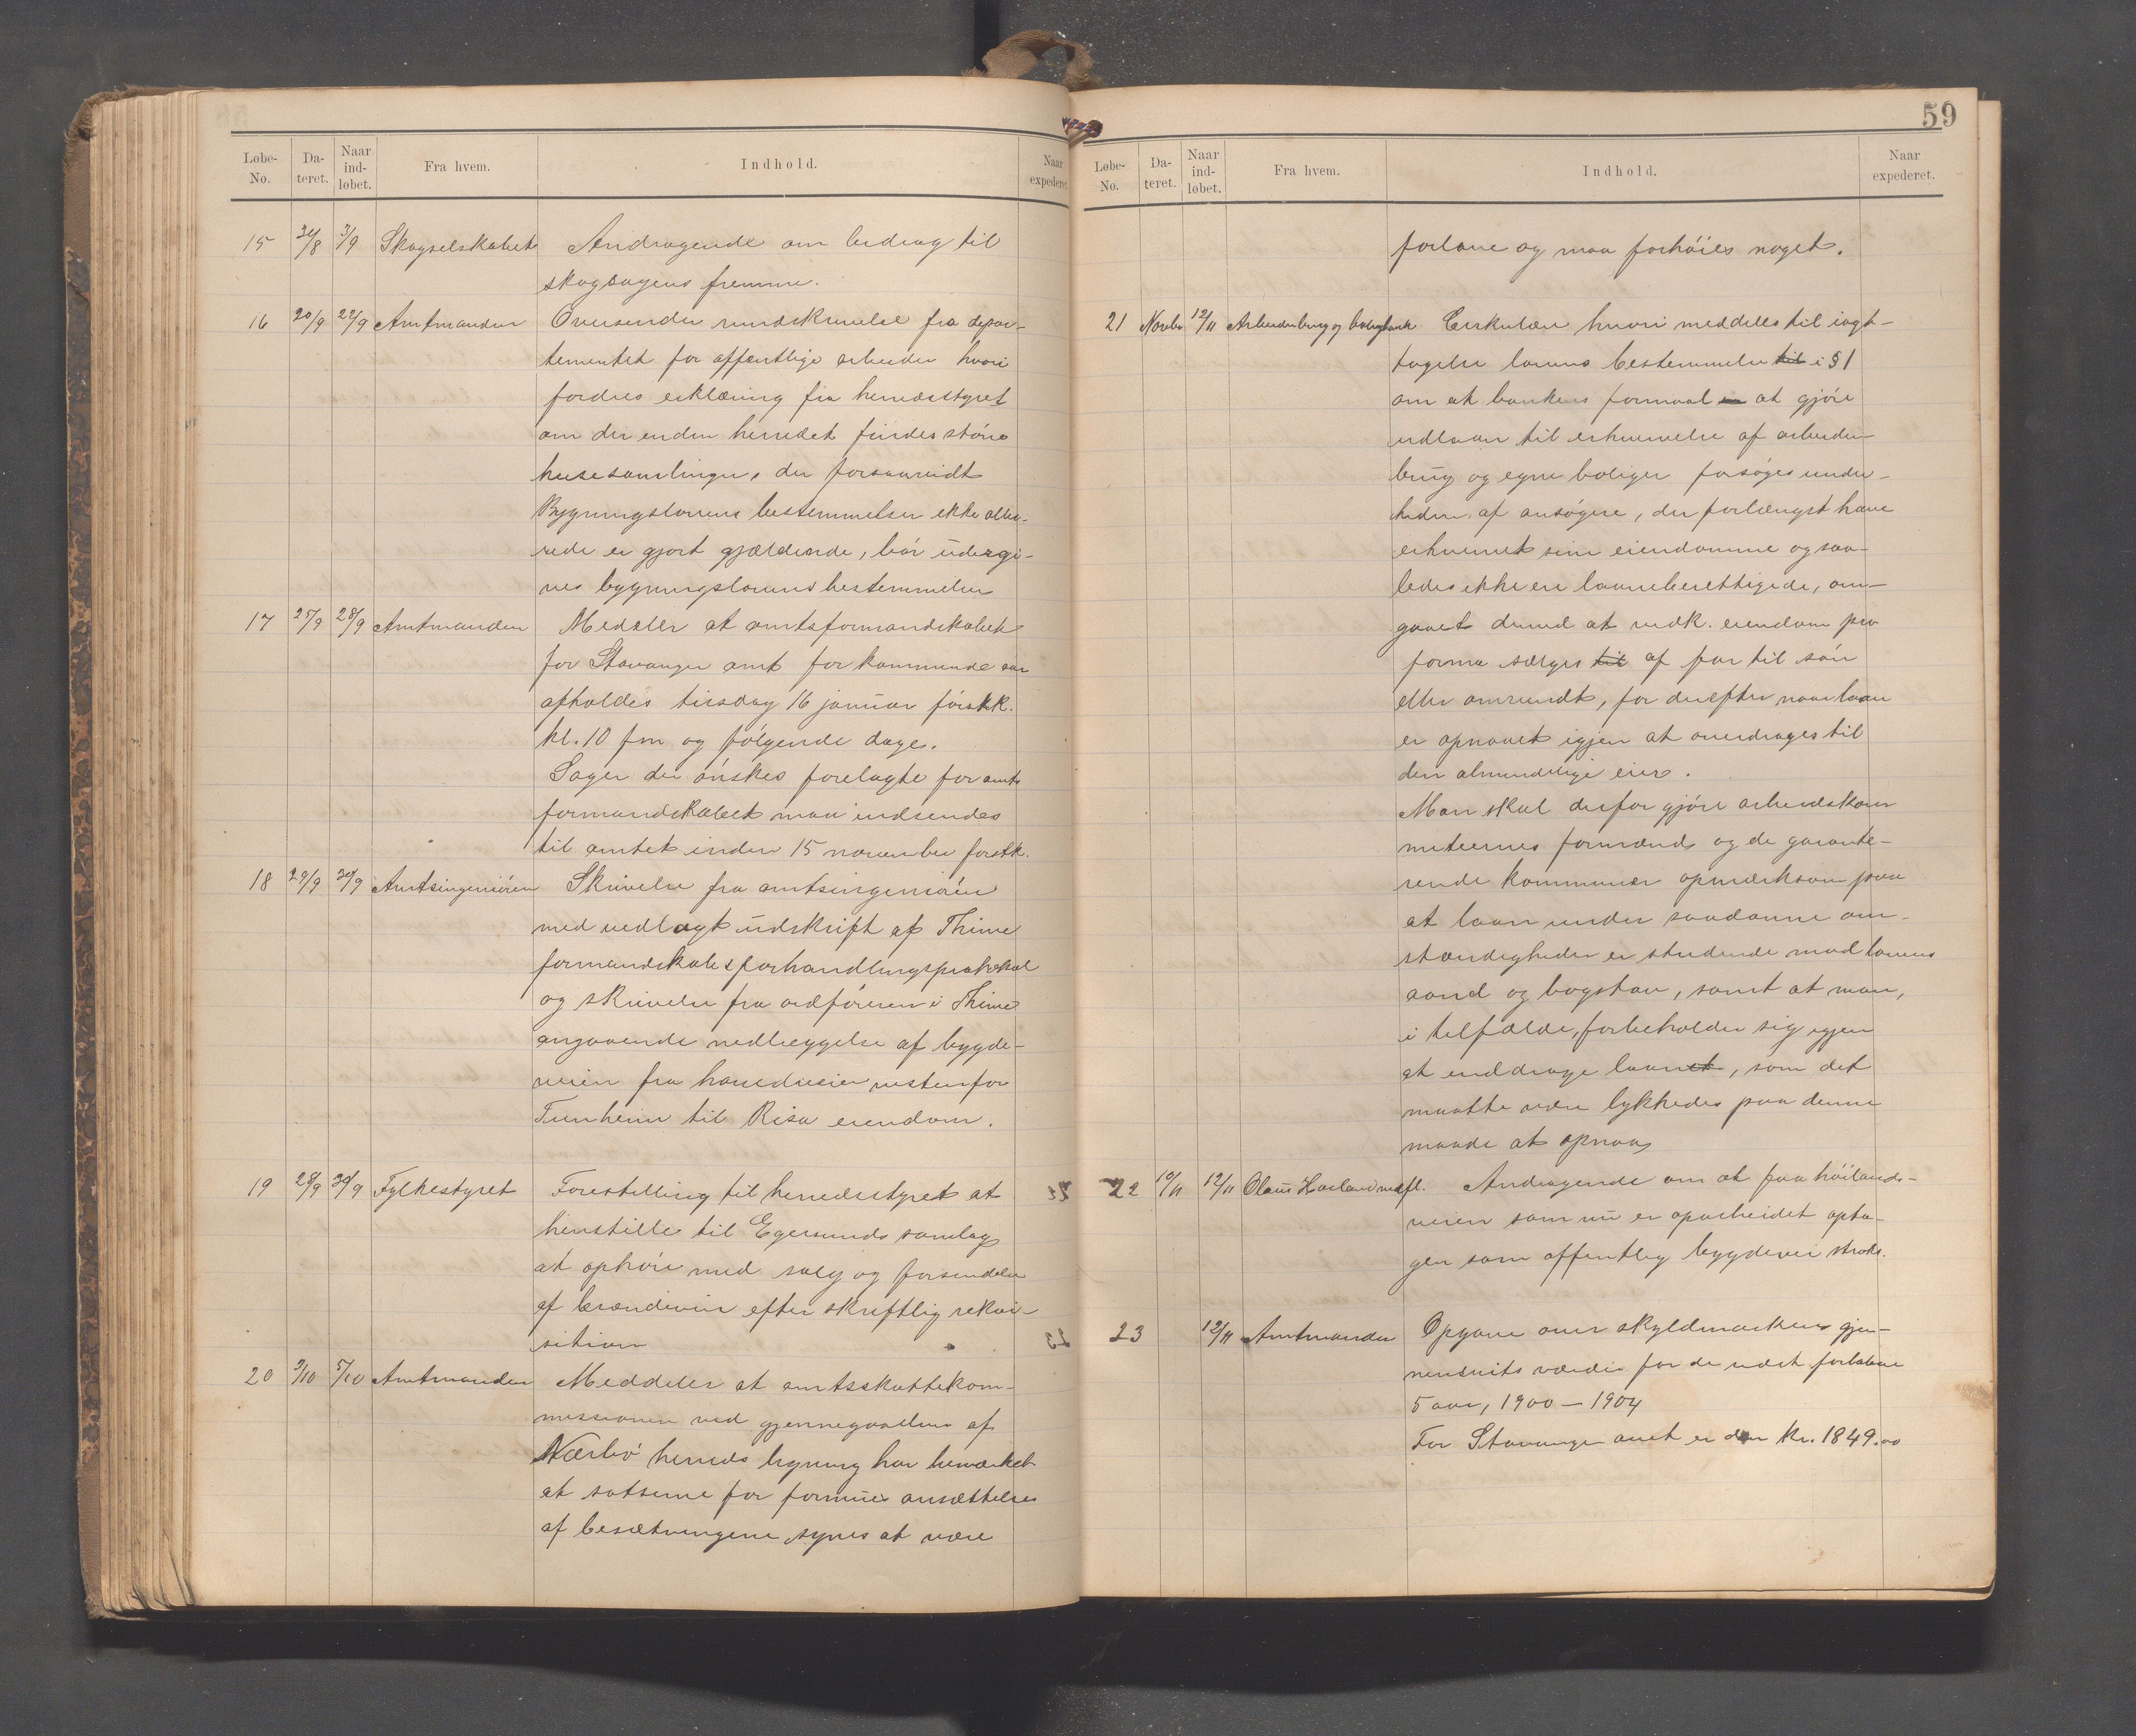 Løbe-No. Da-teret. Naar ind-løbet. Fra hvem. Indhold. Naar expederet
15 30/8 3/9 Skogselskabet Andragende om bidrag til
skogsagens fremme.
16 20/9 22/9 Amtmanden Oversender rundskrivelse fra depar-
tementet for offentlige arbeider hvori
fordres erklæring fra herredsstyret
om der inden herredet findes större
husesamlinger, der forsaavidt
Bygningslovens bestemmelser ikke aller-
rede er gjort gjældende, bör undergi-
ves bygningslovens bestemmelser
17 25/9 28/9 Amtmanden Meddeler at amtsformandskabet
for Stavanger amt for kommende aar
afholdes tirsdag 16 januar förstk.
kl. 10 fm og følgende dage.
Sager der önskes forelagte for amts
formandskabet maa indsendes
til amtet inden 15 november förstk.
18 29/9 30/9 Amtsingeniören Skrivelse fra amtsingeniören
med vedlagt udskrift af Thime
formandskabsforhandlingsprotokol
og skrivelse fra ordföreren i Thime
angaaende nedlæggelse af bygde-
veien fra hovedveien vestenfor
Tunheim til Risa eiendom.
19 28/9 30/9 Fylkestyret Forestilling til herredsstyret at
henstille til Egersunds samlag
at ophöre med salg og forsendelse
af brændevin efter skriftlig rekvi-
sition
20 3/10 5/10 Amtmanden Meddeler at amtsskattekom-
missionen ved gjennegaaelsen af
Nærbö herreds ligning har bemærket
at satserne for formues ansættelse
af besætningene synes at være
59
Løbe-No. Da-teret. Naar ind-løbet. Fra hvem. Indhold. Naar expederet.
forlave og maa forhöies noget.
21 Novbr 12/11 Arbeiderbrug og boligbank Cirkulære hvori meddeles til iagt-
tagelse lovens bestemmelse til i § 1
om at bankens formaal at gjöre
udlaan til erhvervelse af arbeider-
brug og egne boliger forsöges under-
tiden af ansögere, der forlængst have
erhvervet sine eiendomme og saa-
ledes ikke ere laaneberettigede, om-
gaaet derved at vedk. eiendom pro
forma sælges til af far til sön
eller omvendt, for derefter naar laan
er opnaaet igjen at overdrages til
den almindelige eier.
Man skal derfor gjöre arbeidskom
miteernes formænd og de garante-
rende kommuner opmærksom paa
at laan under saadanne om-
stændigheder er stridende mod lovens
aand og bogstav, samt at man,
i tilfælde, forbeholder sig igjen
at inddrage laanet, som det
maatte være lykkedes paa denne
maade at opnaa
22 10/11 12/11 Olaus Haaland med fl. Andragende om at faa höilands-
veien som nu er oparbeidet opta-
gen som offentlig bygdevei straks.
23 12/11 Amtmanden Opgave over skyldmarkens gjen-
nemsnits værdi for de sidst forløbne
5 aar, 1900 — 1904
For Stavanger amt er den kr. 1849.00